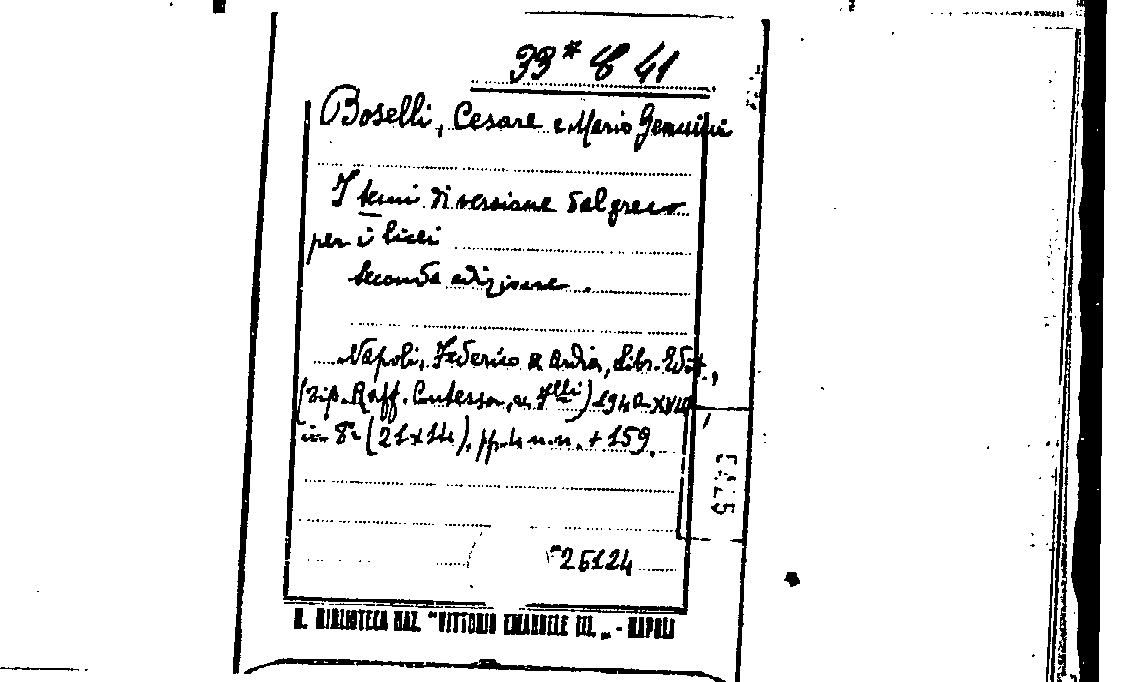 33* E 41
Boselli, Cesare e Mario Gemmini
I temi di versione dal greco
per i licei
Seconda edizione.
Napoli, Federico & Ardia, Libr. Edit.,
(Tip. Raff. Contessa, & F.lli) 1940-XVIII
in-8° (21x14), pp. 4 n.n. + 159.
26124
R. BIBLIOTECA NAZ. "VITTORIO EMANUELE III" - NAPOLI